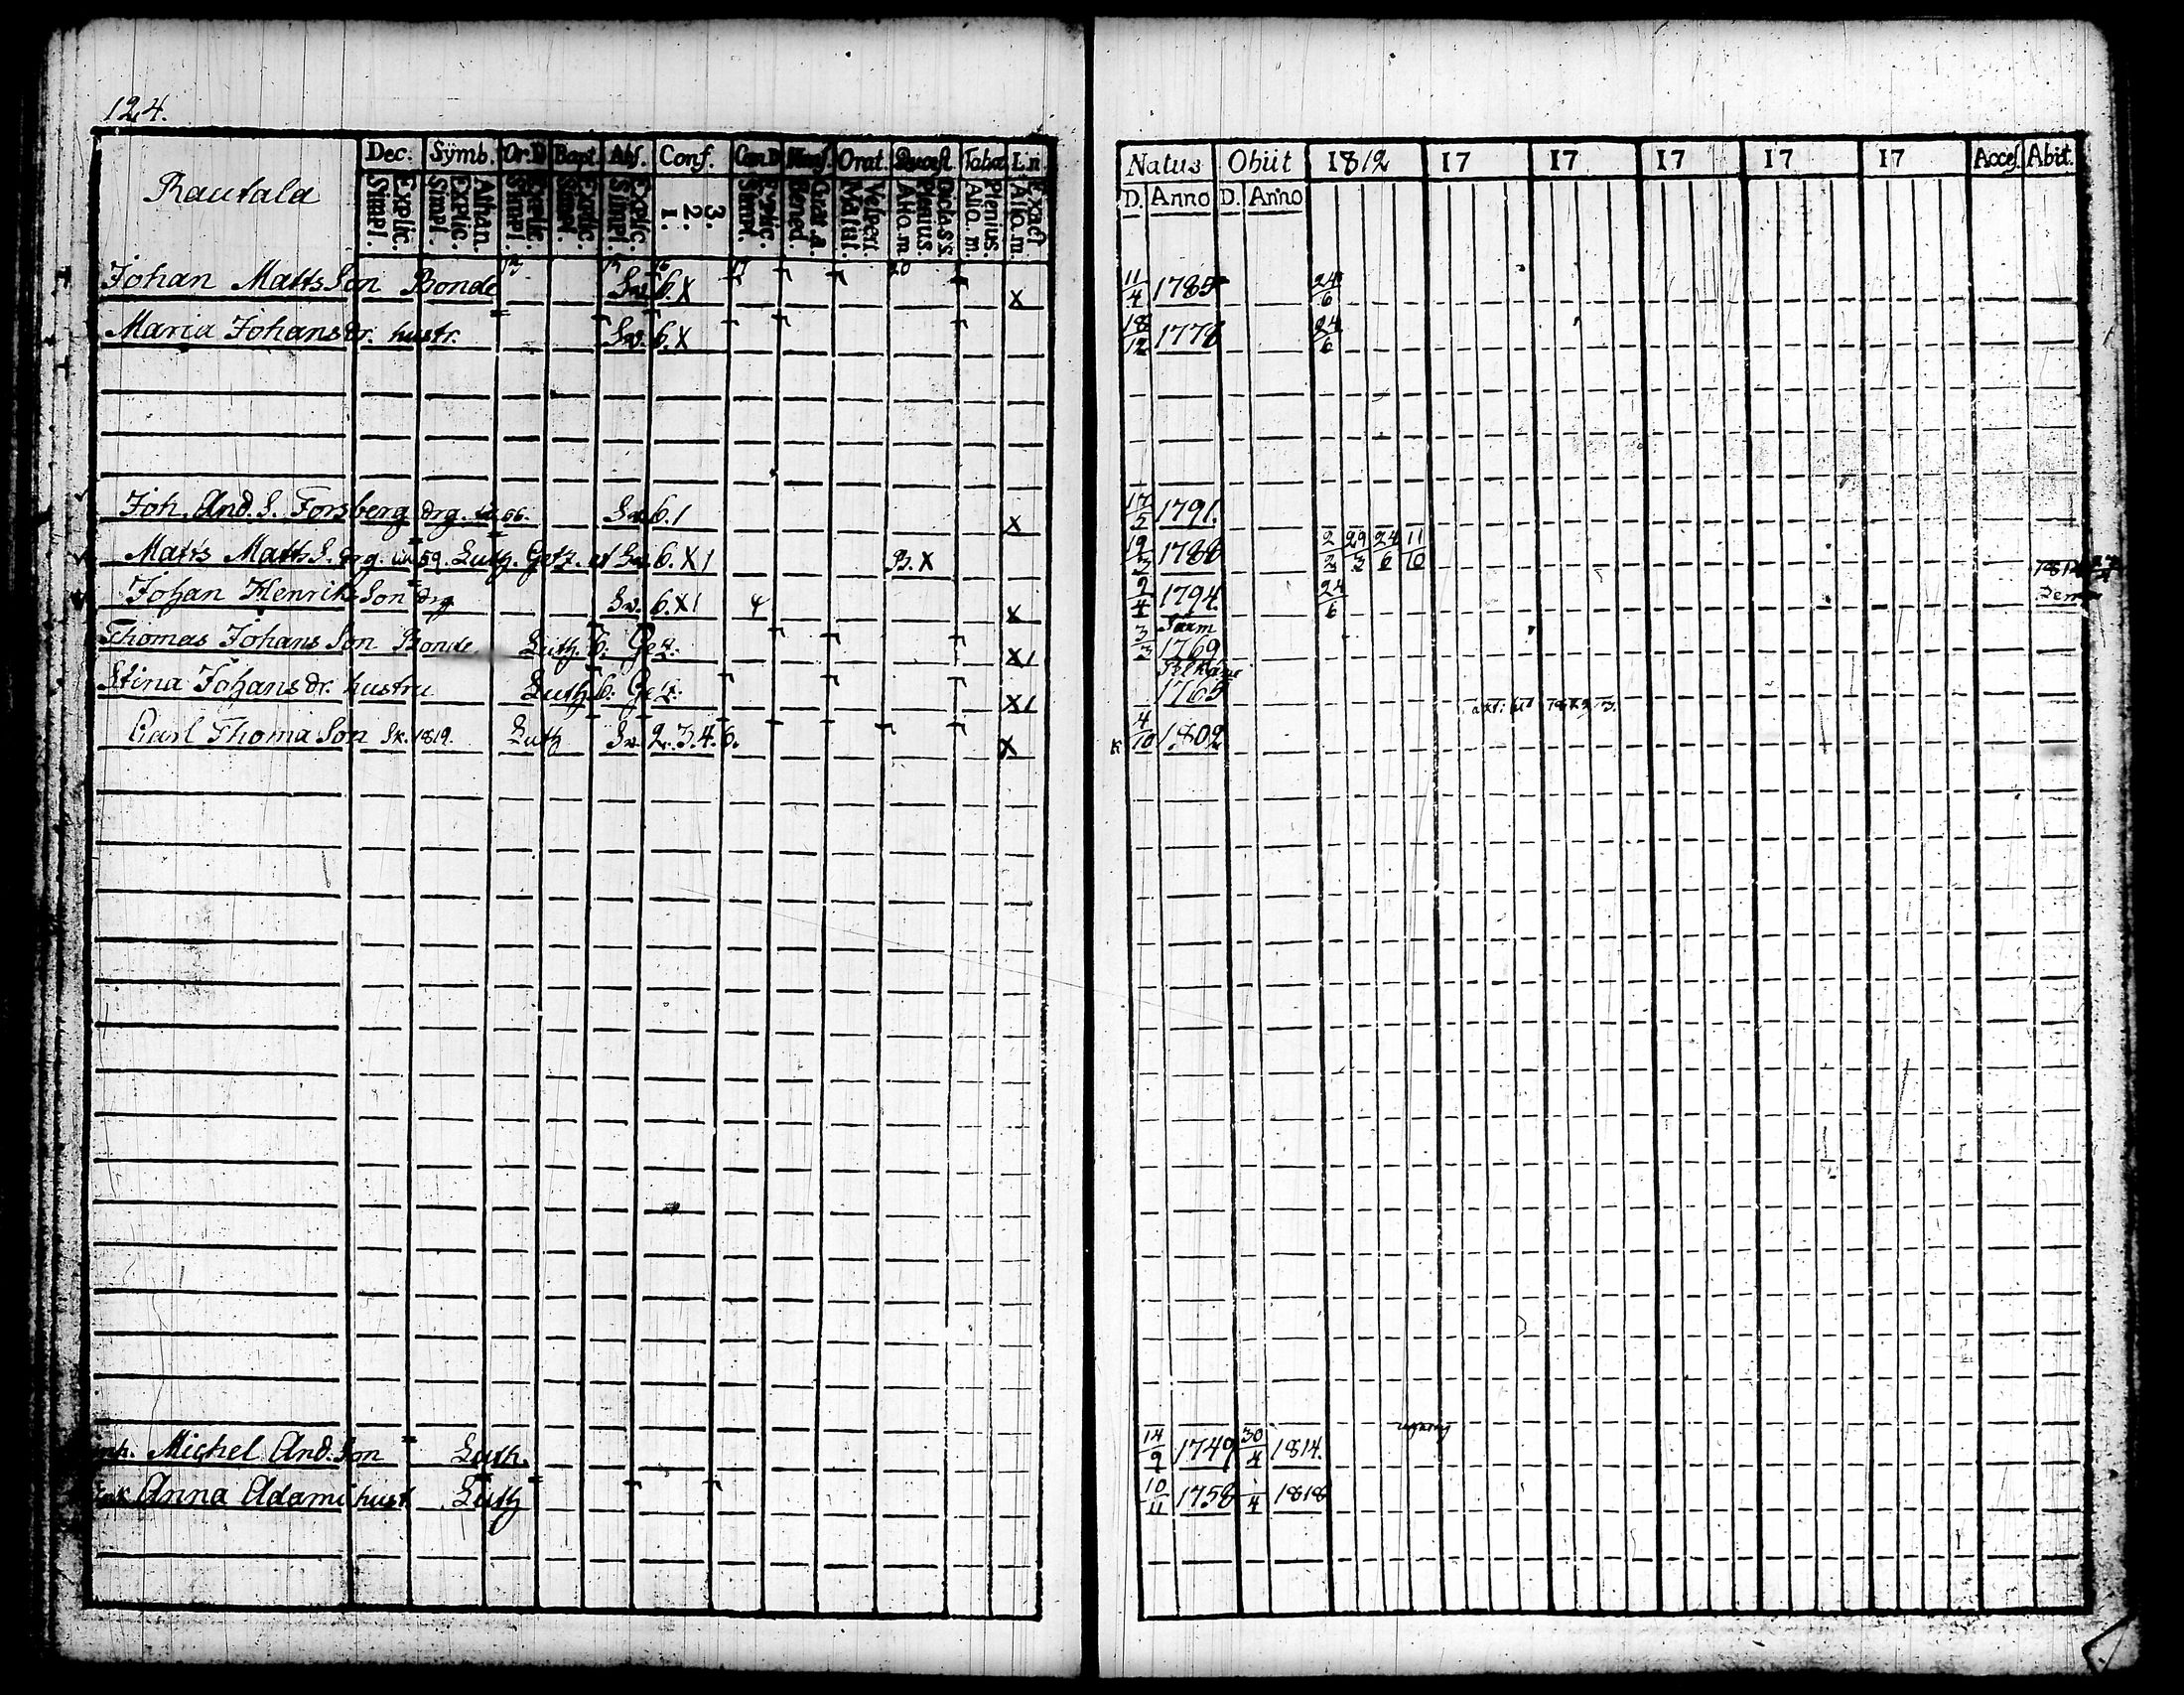 124.
Rautala
Dec. Symb. Or.D Bapt. Abs. Conf. Can.D Orat. Quæst. Tabæ L.n.
Simpl. Explic. Simpl. Explic. Athan. Simpl. Explic. Simpl. Explic. Simpl. Explic. 1. 2. 3. Simpl. Explic. Bened. Grat.a. Matut. Vespert. Alio.m. Plenius. Alio.m. Plenius. Alio.m. Exact
Natus Obiit 1812 17 17 17 17 17 Acces. Abit.
D. Anno D. Anno
Johan Matts Son Bonde Sv. 6.X X 11/4 1785 24/6
Maria Johans dr. hustr. Sv. 6.X 18/12 1778 24/6
Joh. And. S. Forsberg drg. 66. Sv. 6.1 X 17/5 1791.
Matts Matts S. drg. 59. Luth. Getz. et Sv. 6.X1 B.X 19/3 1788 2/2 29/3 24/6 11/10
Johan Henriks Son drg Sv. 6.X1 4 X 9/4 1794. 24/6
Thomas Johans Son Bonde Luth. 6. Getz. X1 3/3 1769
Stina Johans dr. hustru Luth. 6. Getz. X1 1765
Carl Thoma Son Sk. 1819. Luth Sv. 2.3.4.6. X 4/10 1802
inh. Michel And. Son Luth. 14/9 1749 30/4 1814.
Enk Anna Adami hust Luth 10/11 1758 1/4 1818